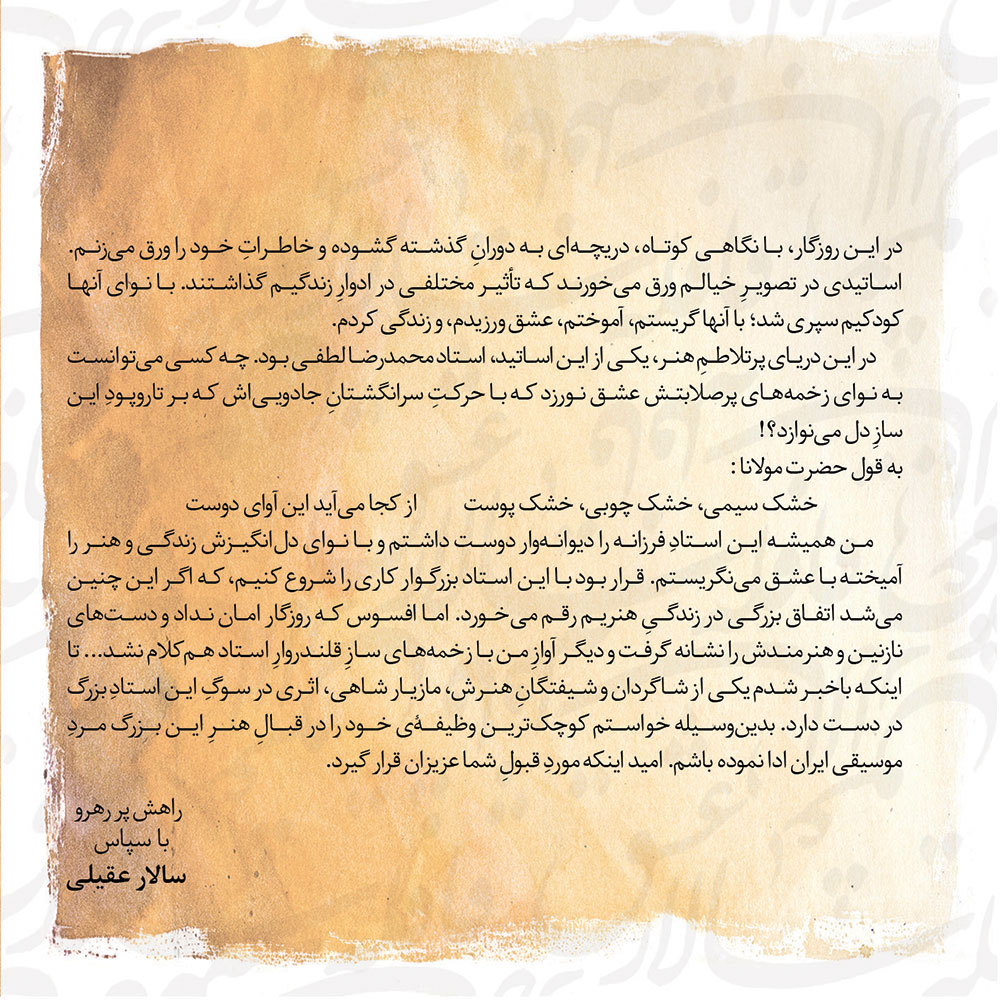 در این روزگار، با نگاهی کوتاه، دریچه‌ای به دورانِ گذشته گشوده و خاطراتِ خود را ورق می‌زنم.
اساتیدی در تصویرِ خیالم ورق می‌خورند که تأثیر مختلفی در ادوارِ زندگیم گذاشتند. با نوای آنها
کودکیم سپری شد؛ با آنها گریستم، آموختم، عشق ورزیدم، و زندگی کردم.
در این دریای پرتلاطمِ هنر، یکی از این اساتید، استاد محمدرضا لطفی بود. چه کسی می‌توانست
به نوای زخمه‌های پرصلابتش عشق نورزد که با حرکتِ سرانگشتانِ جادویی‌اش که بر تاروپودِ این
سازِ دل می‌نوازد؟!
به قول حضرت مولانا:
خشک سیمی، خشک چوبی، خشک پوست از کجا می‌آید این آوای دوست
من همیشه این استادِ فرزانه را دیوانه‌وار دوست داشتم و با نوای دل‌انگیزش زندگی و هنر را
آمیخته با عشق می‌نگریستم. قرار بود با این استاد بزرگوار کاری را شروع کنیم، که اگر این چنین
می‌شد اتفاق بزرگی در زندگیِ هنریم رقم می‌خورد. اما افسوس که روزگار امان نداد و دست‌های
نازنین و هنرمندش را نشانه گرفت و دیگر آوازِ من با زخمه‌های سازِ قلندروارِ استاد هم‌کلام نشد... تا
اینکه باخبر شدم یکی از شاگردان و شیفتگانِ هنرش، مازیار شاهی، اثری در سوگِ این استادِ بزرگ
در دست دارد. بدین‌وسیله خواستم کوچک‌ترین وظیفهٔ خود را در قبالِ هنرِ این بزرگ مردِ
موسیقی ایران ادا نموده باشم. امید اینکه موردِ قبولِ شما عزیزان قرار گیرد.
راهش پر رهرو
با سپاس
سالار عقیلی